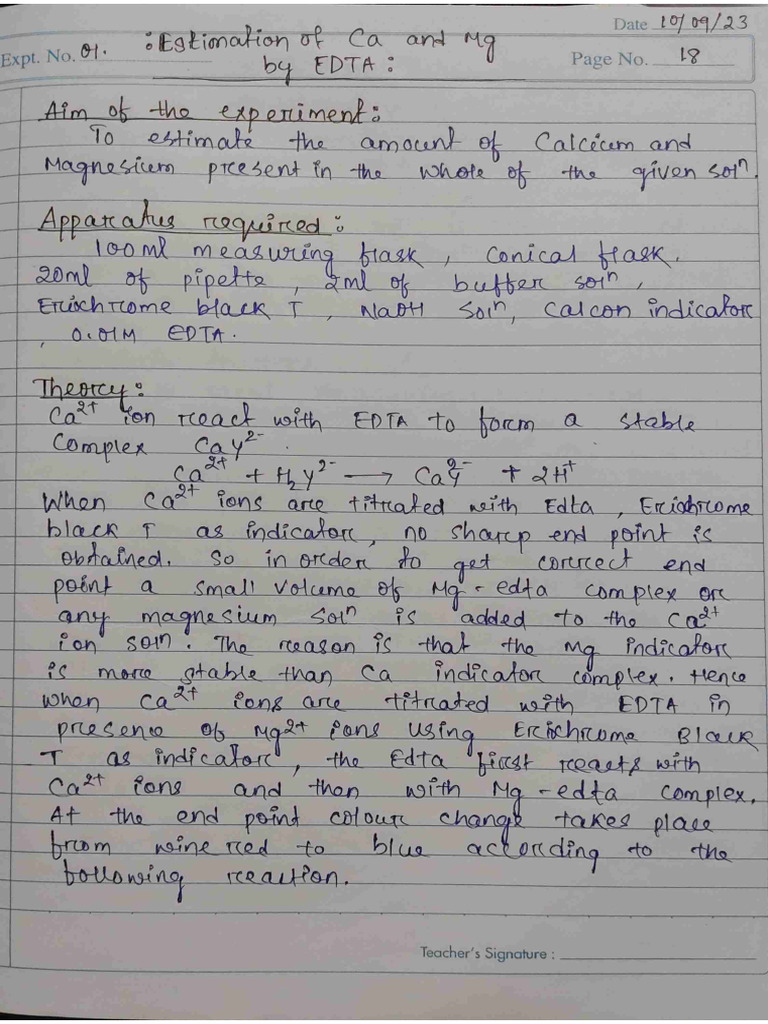 Date 10/09/23
Expt. No. 01. : Estimation of Ca and Mg
by EDTA :
Page No. 18
Aim of the experiment:
To estimate the amount of Calcium and
Magnesium present in the whole of the given solⁿ.
Apparatus required:
100ml measuring flask, Conical flask.
20ml of pipette, 2ml of buffer solⁿ,
Eriochrome black T, NaOH solⁿ, Calcon indicator
, 0.01M EDTA.
Theory:
Ca²⁺ ion react with EDTA to form a stable
Complex CaY²⁻.
Ca²⁺ + H₂Y²⁻ ⟶ CaY²⁻ + 2H⁺
When Ca²⁺ ions are titrated with Edta, Eriochrome
black T as indicator, no sharp end point is
obtained. So in order to get correct end
point a small volume of Mg-edta complex or
any magnesium solⁿ is added to the Ca²⁺
ion solⁿ. The reason is that the Mg indicator
is more stable than Ca indicator complex. Hence
when Ca²⁺ ions are titrated with EDTA in
presence of Mg²⁺ ions using Eriochrome Black
T as indicator, the Edta first reacts with
Ca²⁺ ions and than with Mg-edta complex.
At the end point colour change takes place
from wine red to blue according to the
following reaction.
Teacher's Signature :